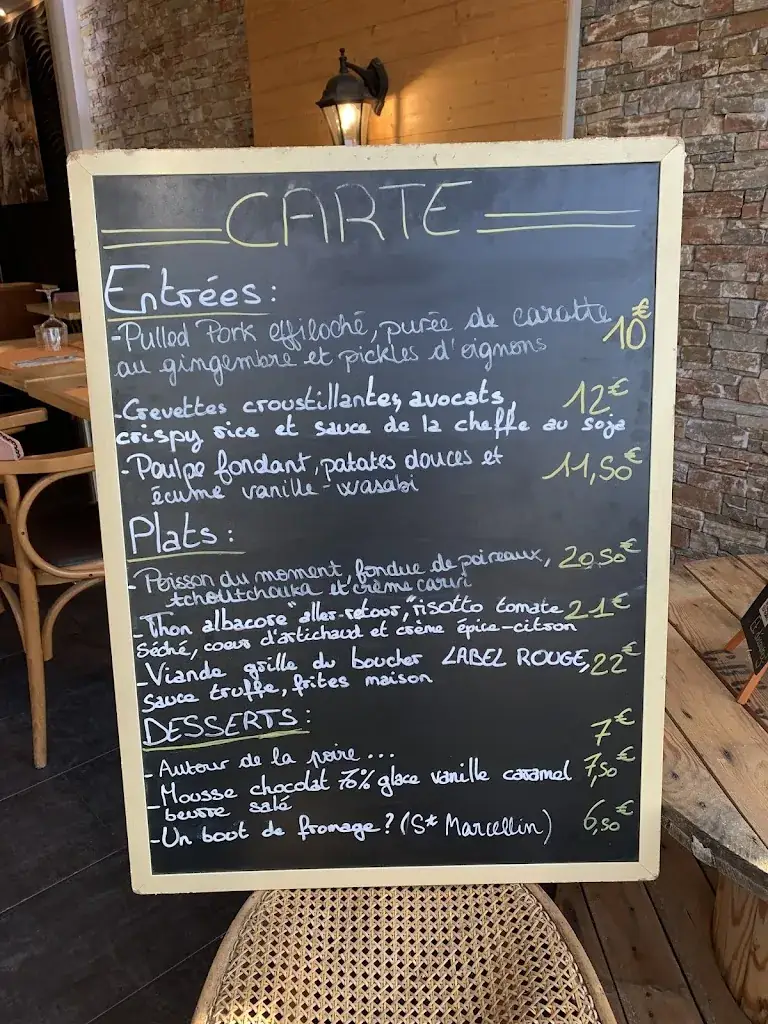 CARTE
Entrées :
- Pulled Pork effiloché, purée de carotte 10€
au gingembre et pickles d'oignons
- Crevettes croustillantes, avocats, 12€
crispy rice et sauce de la cheffe au soja
- Poulpe fondant, patates douces et 11,50€
écume vanille - wasabi
Plats :
- Poisson du moment, fondue de poireaux, 20,50€
tchoutchouka et crème curry
- Thon albacore "aller-retour", risotto tomate 21€
séché, coeur d'artichaud et crème épice-citron
- Viande grille du boucher LABEL ROUGE, 22€
sauce truffe, frites maison
DESSERTS :
- Autour de la poire ... 7€
- Mousse chocolat 76% glace vanille caramel 7,50€
beurre salé
- Un bout de fromage ? (St Marcellin) 6,50€